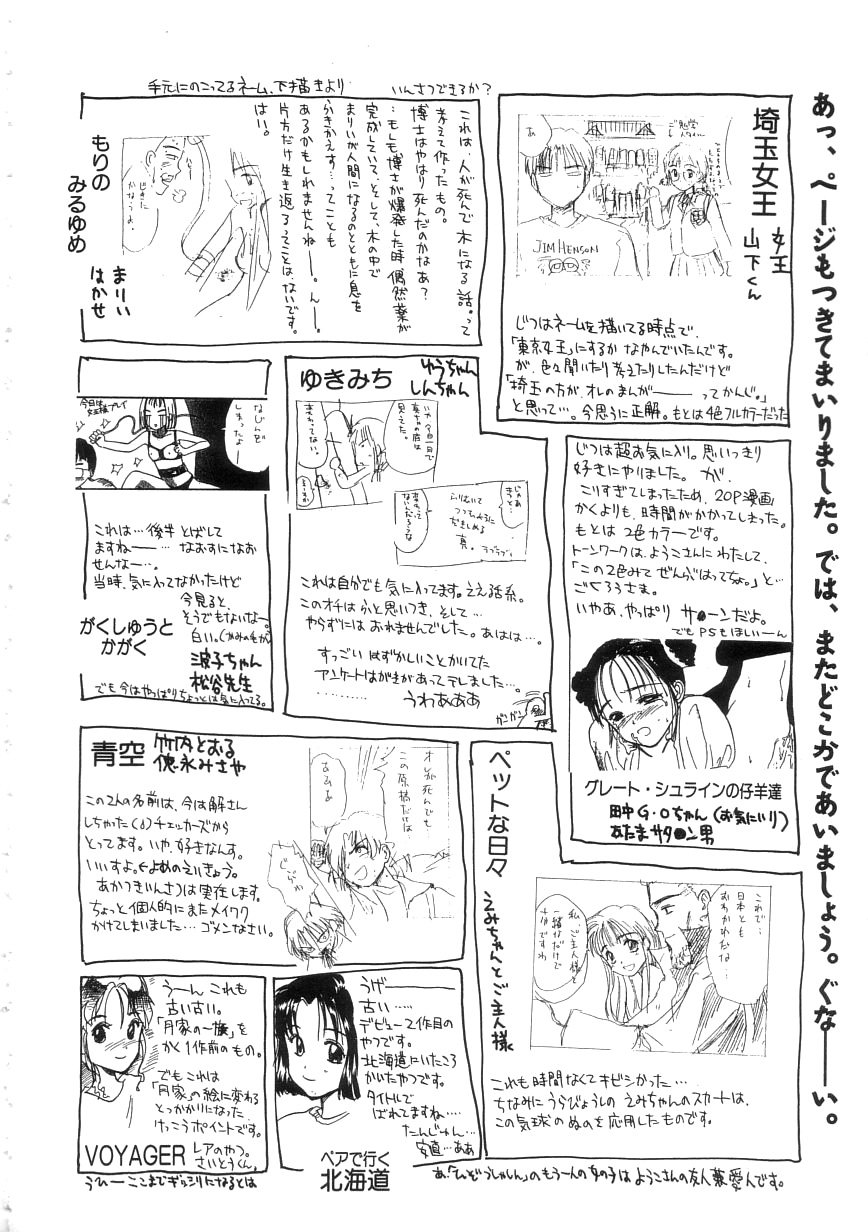 あっ、ページもつきてまいりました。では、またどこかであいましょう。ぐなーーい。
手元にのこってるネーム、下描きより
いんさつできるか？
埼玉女王
女王
山下くん
あ
JIM HENSON
じつはネームを描いてる時点で、
「東京女王」にするか なやんでいたんです。
が、色々聞いたり考えたりしたんだけど
「埼玉の方が、オレのまんが――ってかんじ。」
と思って…。今思うに正解。もとは4色フルカラーだった
これは、人が死んで木になる話。って
考えて作ったもの。
博士はやはり死んだのかなあ？
…もしも博士が爆発した時 偶然薬が
完成していて、そして、木の中で
まりいが人間になるのとともに息を
ふきかえす…ってことも
あるかもしれませんねー。んー。
片方だけ生き返るってことは、ないです。
はい。
もりの
みるゆめ
まりい
はかせ
じつは超お気に入り。思いっきり
好きにやりました。が、
こりすぎてしまったため、20P漫画
かくよりも、時間がかかってしまった。
もとは2色カラーです。
トーンワークは、ようこさんにわたして、
「この2色みて ぜんぶはってちょ。」と…
ごくろうさま。
いやあ、やっぱり サ●ーンだよ。
でもPSもほしいーん
グレート・シュラインの仔羊達
田中G・Oちゃん（お気にいり）
あたまサタ●ン男
ゆきみち
ゆうちゃん
しんちゃん
いや 今日一日で
真っ白の底は
見えた。
変わってない。
じゃあ
きっと
変わって
ないんだろうな
ふりむいて
つっちゃんに
だきしめる
真。
ラブラブ
これは自分でも気に入ってます。ええ話系。
このオチは ふと思いつき、そして…
やらずには おれませんでした。あはは…。
すっごい はずかしいことかいてた
アンケートはがきがあってテレました…。
…………うわあああ
ガンガン
今日は
女王様プレイ
なじんど
しまったよ…
これは…後半とばして
ますねー……なおすになお
せんなー…。
当時、気に入ってなかったけど
今見ると、
そうでもないなー。
白い。（かみの毛が）
がくしゅうと
かがく
波子ちゃん
松谷先生
でも今はやっぱりちょっとは気に入ってる。
青空
竹内とおる
徳永みさや
この2人の名前は、今は解さん
しちゃった（？）チェッカーズから
とってます。いや、好きなんす。
いいすよ。←よめのえいきょう。
あかつきいんさつは実在します。
ちょっと個人的にまたメイワク
かけてしまいました…ゴメンなさい。
オレが死んでも
この原稿だけは…
ペットな日々
えみちゃんとご主人様
これで…
日本とも
おわかれだな…
私、ご主人様と
一緒なだけで
幸せですわ
これも時間なくてキビシかった…
ちなみにうらびょうしの えみちゃんのスカートは、
この気球のぬのを応用したものです。
うーん これも
古い古い。
「月家の一族」を
かく1作前のもの。
でもこれは
「月家」の絵に変わる
とっかかりになった、
けっこうポイントです。
VOYAGER
レアのやつ。
さいとうくん。
うげ――
古い……
デビュー2作目の
やつです。
北海道にいたころ
かいたやつです。
タイトルで
ばれてますね…
たんじゅん…
安直…ああ
ペアで行く
北海道
うひー ここまでぎっシリになるとは
あ、「ひんぞうしゃしん」のもう一人の女の子はようこさんの友人兼愛人です。